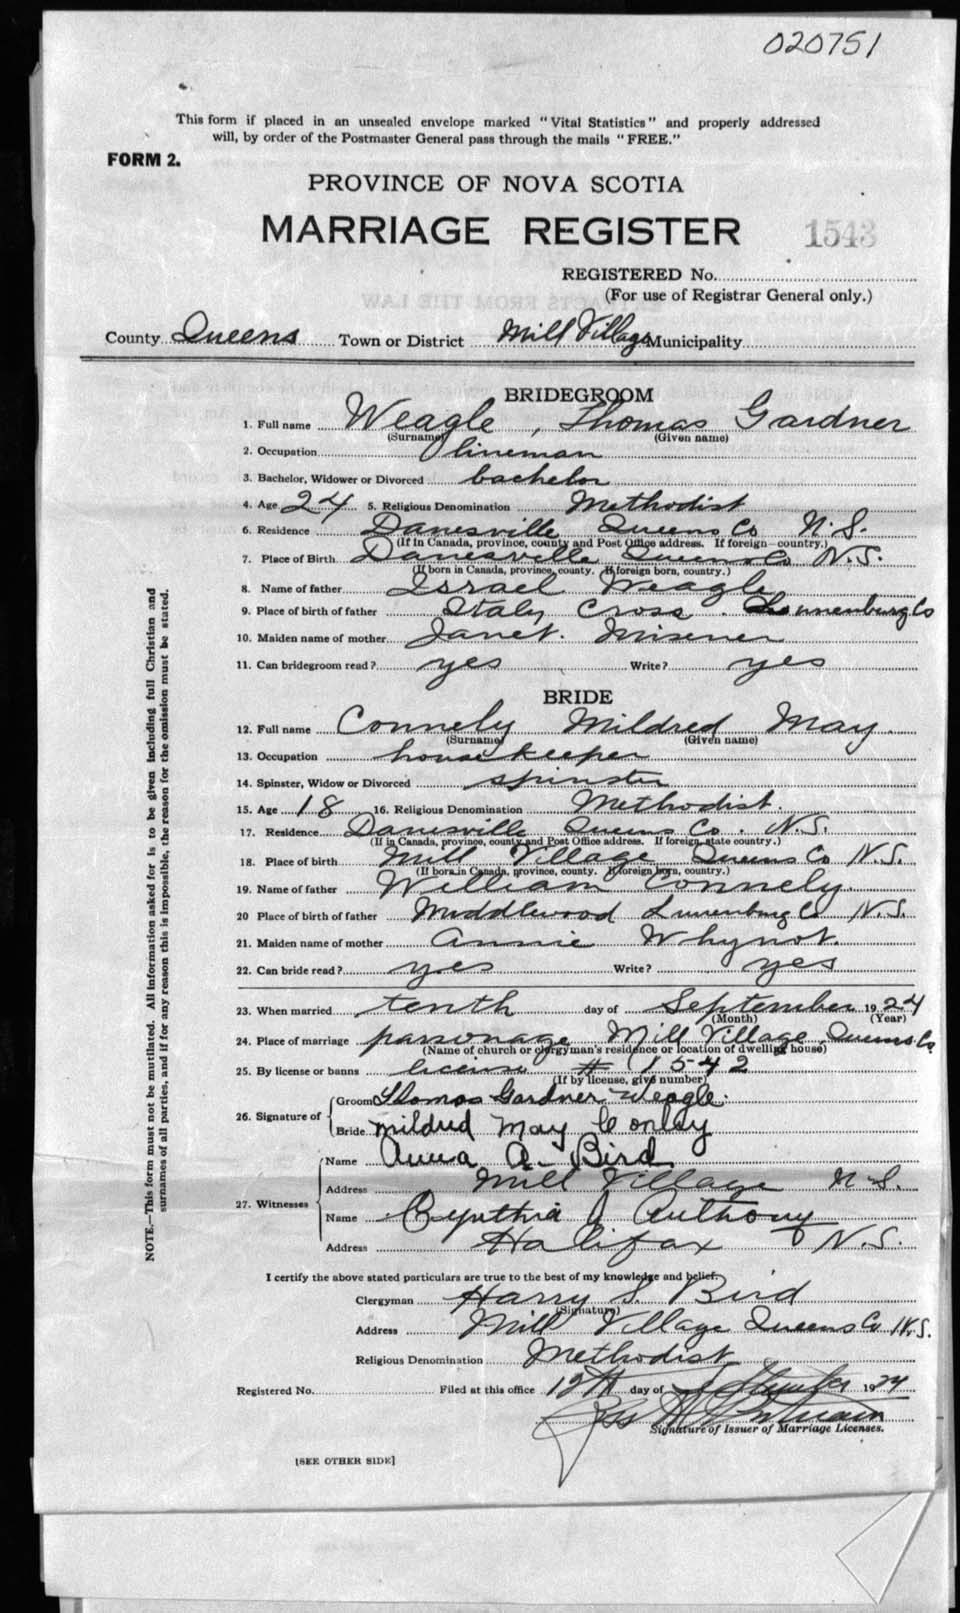 020751
This form if placed in an unsealed envelope marked "Vital Statistics" and properly addressed
will, by order of the Postmaster General pass through the mails "FREE."
FORM 2.
PROVINCE OF NOVA SCOTIA
MARRIAGE REGISTER 1543
REGISTERED No.
(For use of Registrar General only.)
County Queens Town or District Mill Village Municipality
BRIDEGROOM
1. Full name Weagle, Thomas Gardner
(Surname) (Given name)
2. Occupation lineman
3. Bachelor, Widower or Divorced bachelor
4. Age 24 5. Religious Denomination Methodist
6. Residence Danesville Queens Co N.S.
(If in Canada, province, county and Post Office address. If foreign country.)
7. Place of Birth Danesville Queens Co N.S.
(If born in Canada, province, county. If foreign born, country.)
8. Name of father Israel Weagle
9. Place of birth of father Italy Cross. Lunnenburg Co
10. Maiden name of mother Janet. Misener
11. Can bridegroom read? yes Write? yes
BRIDE
12. Full name Connely Mildred May.
(Surname) (Given name)
13. Occupation housekeeper
14. Spinster, Widow or Divorced spinster
15. Age 18 16. Religious Denomination Methodist.
17. Residence Danesville Queens Co. N.S.
(If in Canada, province, county and Post Office address. If foreign, state country.)
18. Place of birth Mill Village Queens Co N.S.
(If born in Canada, province, county. If foreign born, country.)
19. Name of father William Connely.
20 Place of birth of father Middlewood Lunenburg Co N.S.
21. Maiden name of mother Annie Whynot.
22. Can bride read? yes Write? yes
23. When married tenth day of September 1924
(Month) (Year)
24. Place of marriage parsonage Mill Village, Queens Co
(Name of church or clergyman's residence or location of dwelling house)
25. By license or banns license # 1542
(If by license, give number)
26. Signature of
Groom Thomas Gardner Weagle.
Bride Mildred May Conley
27. Witnesses
Name Anna A. Bird
Address Mill Village N.S.
Name Cynthia J Anthony
Address Halifax N.S.
I certify the above stated particulars are true to the best of my knowledge and belief.
Clergyman Harry S. Bird
(Signature)
Address Mill Village Queens Co N.S.
Religious Denomination Methodist
Registered No. Filed at this office 12th day of September 1924
Signature of Issuer of Marriage Licenses.
[SEE OTHER SIDE]
NOTE.—This form must not be mutilated. All information asked for is to be given including full Christian and
surnames of all parties, and if for any reason this is impossible, the reason for the omission must be stated.